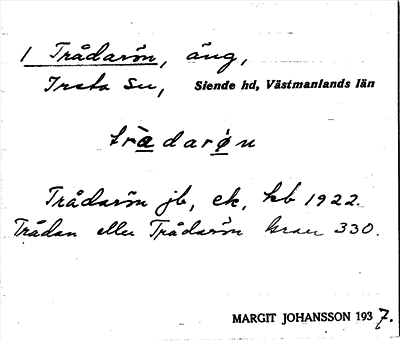 1 Trådarön, äng,
Irsta sn, Siende hd, Västmanlands län
tràdarøn
Trådarön jb, ek, hb 1922.
Trådan eller Trådarön 330.
MARGIT JOHANSSON 1937.